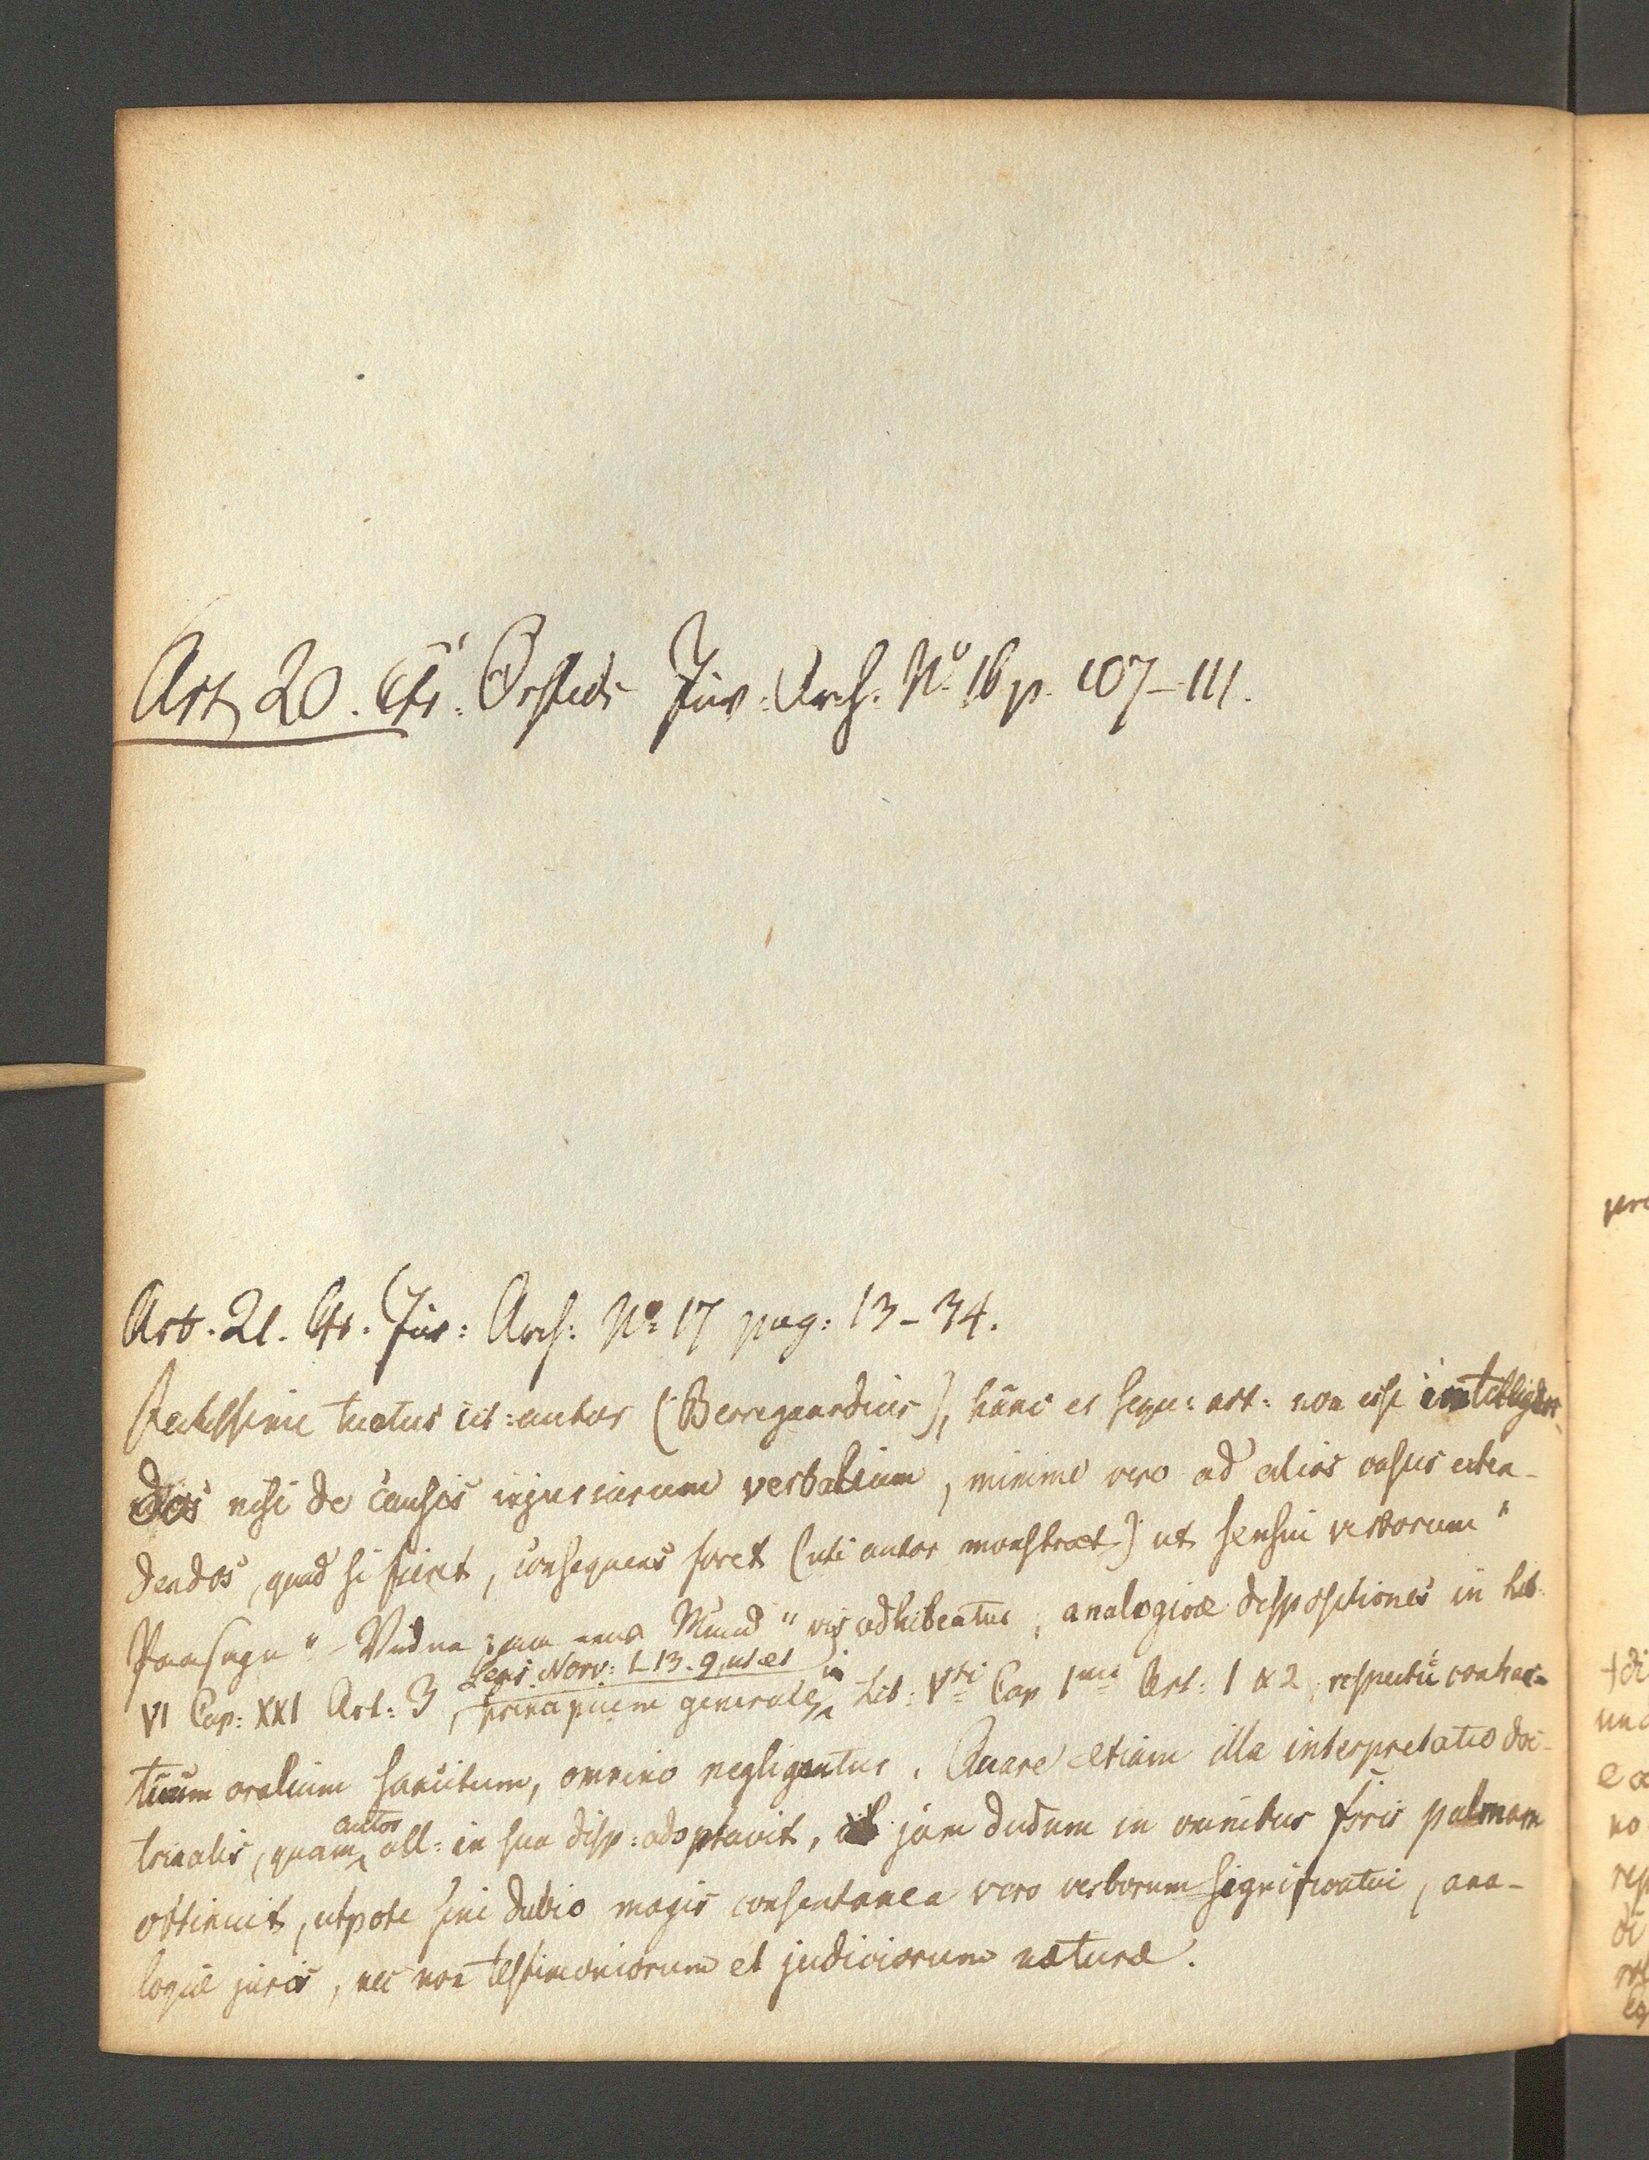 Art 20. Cfr. Ørsteds Jur: Arch: No. 16 p. 107-111.
Art. 21. Cfr. Jur: Arch: No 17 pag: 13-34.
Rectissime tuetur cit: autor (Berregaardius), hunc et sequ: art: non esse intelligen-
dos nisi de causis injuriarum verbalium, minime vero ad alios casus exten-
dendos, quod si fieret, consequens foret (uti autor monstrat) ut sensui verborum "
Paasagn" - Vidne paa eens Mund" vis adhibeatur, analogicæ dispositiones in Lib.
VI Cap: XXI Art: 3, Legis Norv: 1.13.9, ut et principium generale, in Lib: Vti Cap 1mi Art: 1 & 2, respectu contrac-
tuum oralium sancitum, omnino negligantur. Quare etiam illa interpretatio doc-
trinalis, quam autor all: in sua disp: adoptavit, jam dudum in omnibus foris palmam
obtinuit, utpote sine dubio magis consentanea vero verborum significatui, ana-
logiæ juris, nec non testimoniorum et judiciorum naturæ.